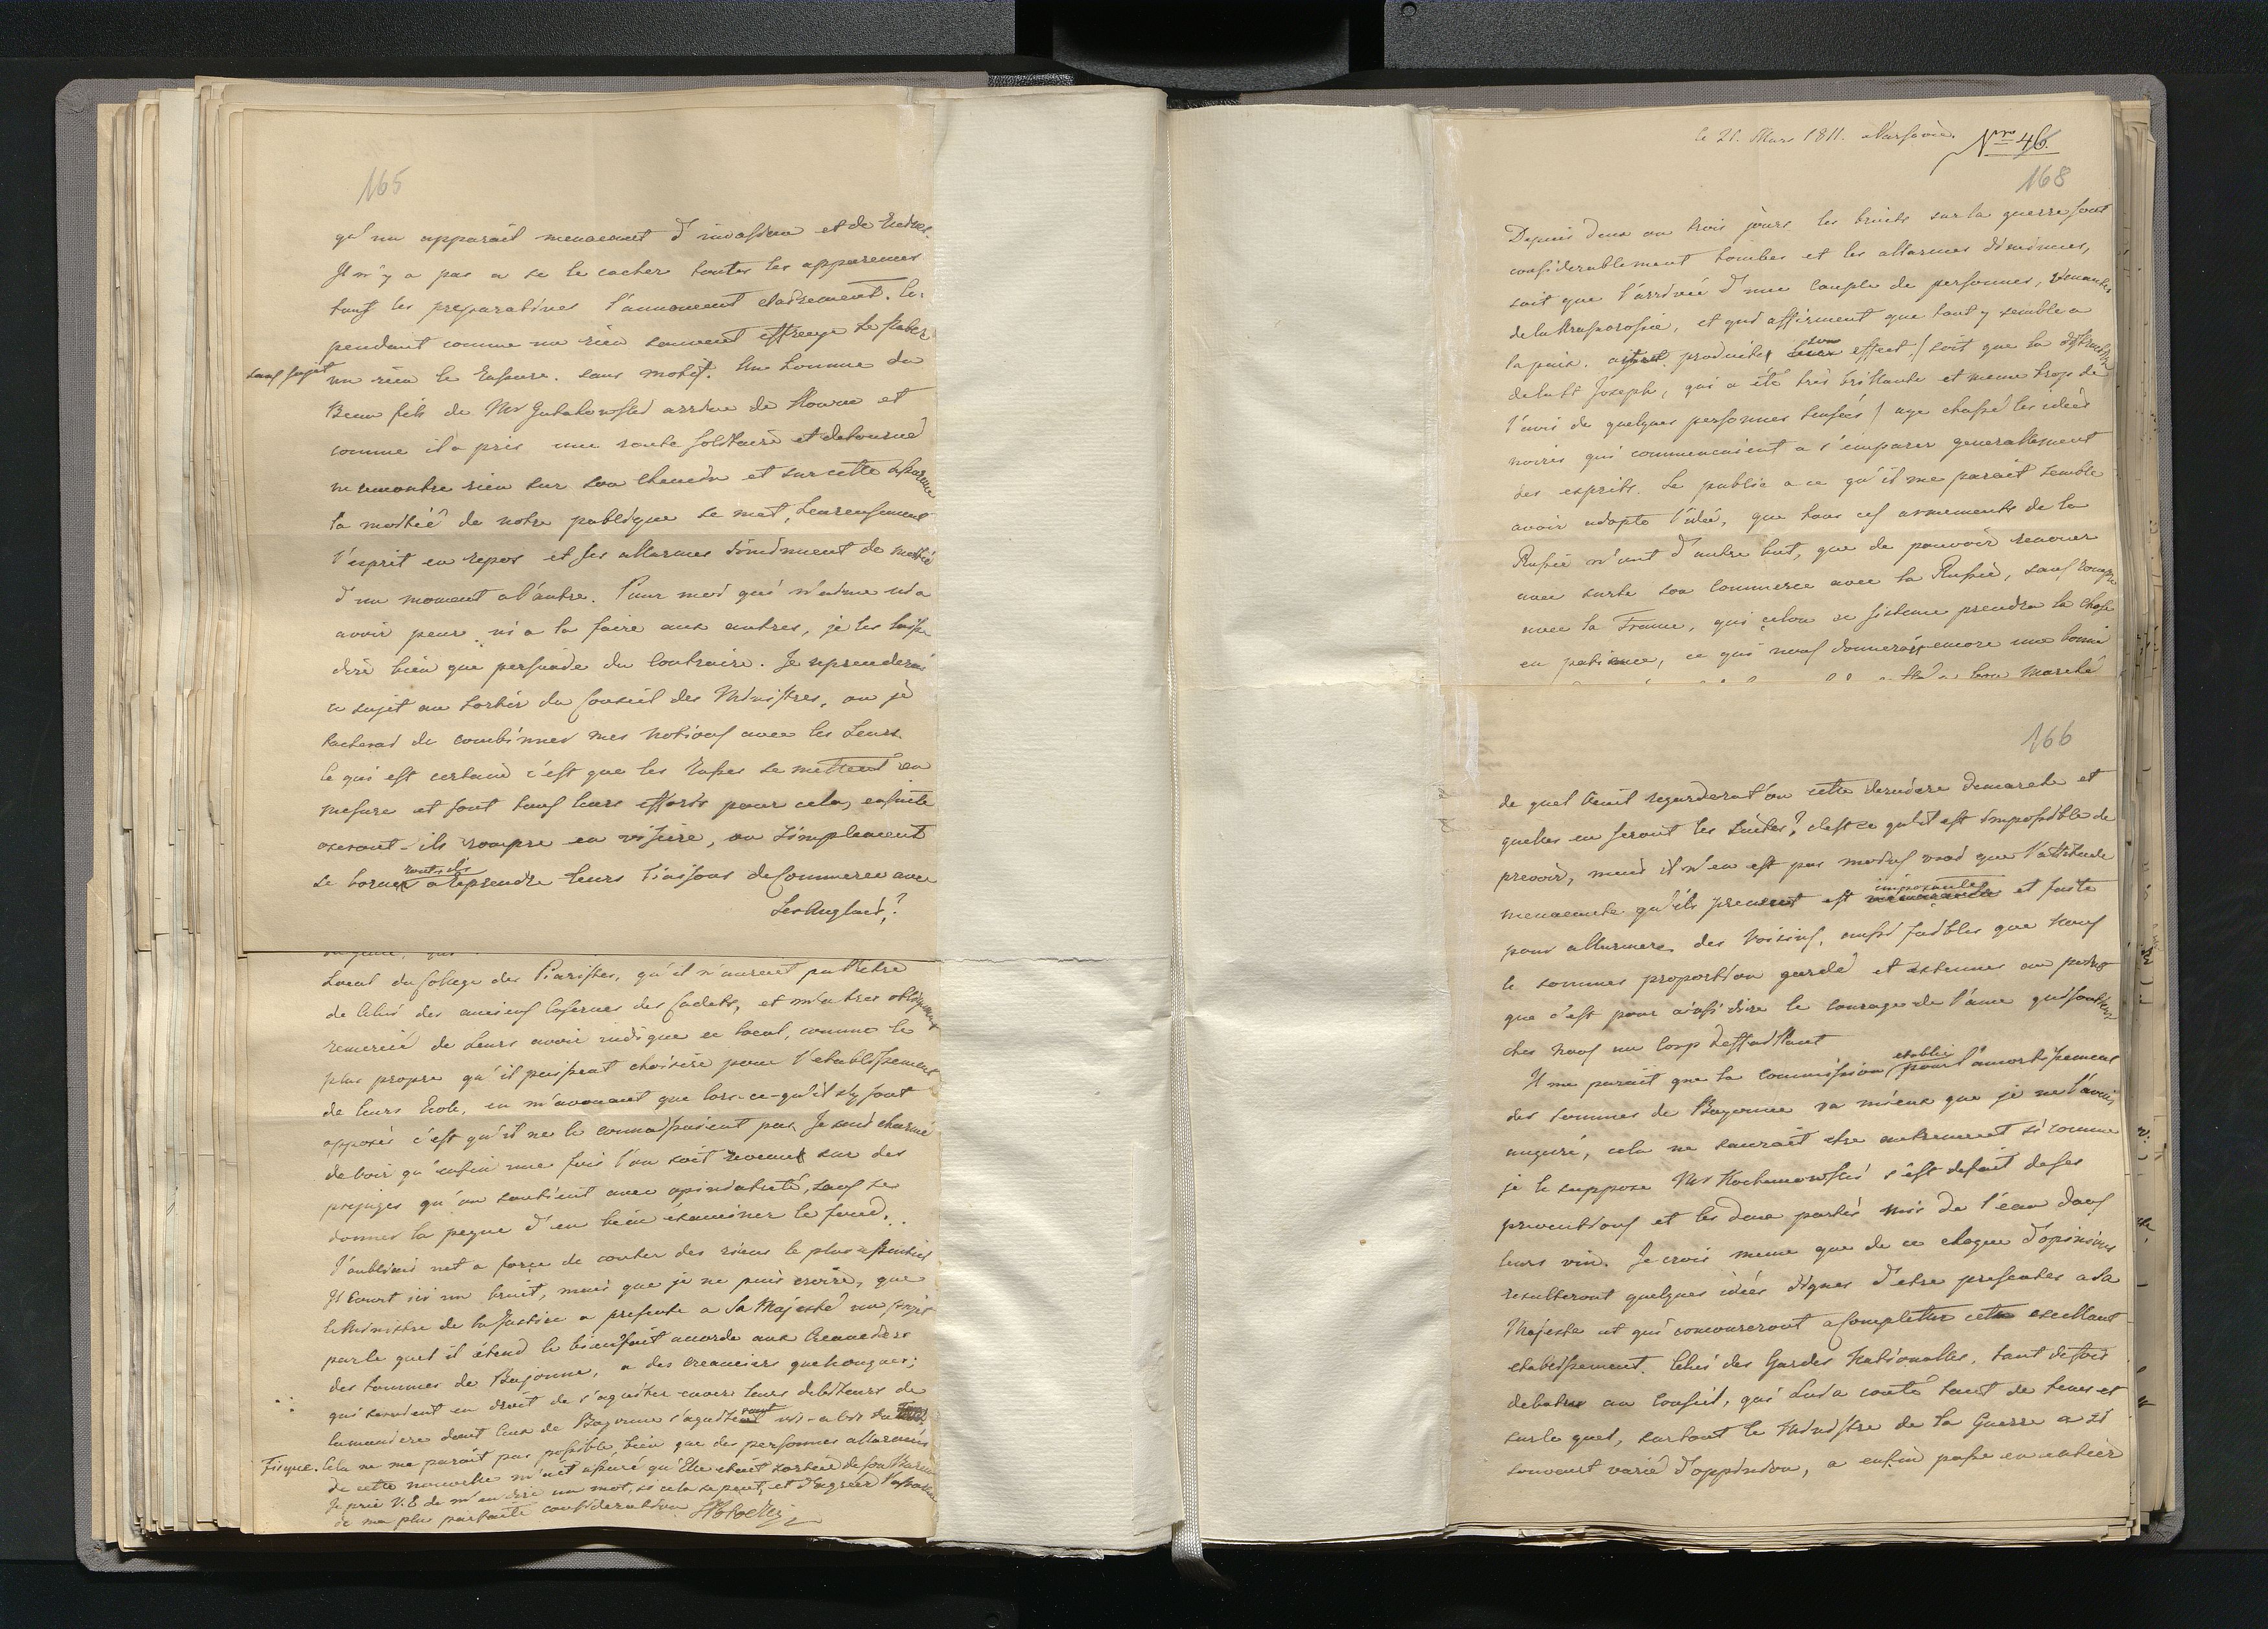 165
qu'un apparait menacent d'invasion et de
Il n'y a pas a se le cacher toutes les apparences
tous les preparatives l'annoncent clairement. Ce-
pendant comme un rien souvent effreye le
sans sujet un rien le Rasure. sans motif. Un homme du
Beau fils de Mr Gutakowski arrive de Kowne et
comme il a pris une route solitaire et detourné
ne rencontre rien sur son chemin et sur cette
la moitiée de notre publique se met, heureusement
l'esprit en repos et ses allarmes diminuent de moitié
d'un moment a l'autre. Pour moi qui n'aime ni a
avoir peur ni a la faire aux autres, je les laisse
dire bien que persuade du Contraire. Je reprenderai
ce sujet au sortir du Conseil des Ministres, ou je
tacherai de combiner mes notions avec les Leurs.
Ce qui est certain c'est que les Russes se mettent en
mesure et font tous leurs efforts pour cela, ensuite
oseront-ils rompre en visiere, ou simplement
se borner vont-ils a reprendre leurs liaisons de Commerce avec
Les Anglais?
Local du College des Piaristes, qu'il n'auroit
de Celui des anciens Casernes des Cadets, et m'a tres obligement
remercié de Leurs avoir indique ce local, comme le
plus propre qu'il puissent choisire pour l'etablissement
de leurs Ecole, en m'avouant que lors-ce-qu'il s'y sont
opposés c'est qu'il ne le connaissaient pas. Je suis charmé
de voir qu'enfin une fois l'on soit revenu sur des
prejuges qu'on soutient avec opiniatreté, sans se
donner la peyne d'en bien examiner le fond.
J'oublieai net a force de conter des riens le plus essentiel
Il Court ici un bruit, mais que je ne puis croire, que
le Ministre de la Justice a presente a Sa Majesté un projet
par le quel il étend le bienfait accorde aux Creanciers
des sommes de Bajonne, a des creanciers quelconques;
qui seroient en droit de s'aquiter envers leurs debiteurs de
la maniere dont Ceux de Bayonne s'aquitent vis-a-vis du
Fisque. Cela ne me parait pas possible, bien que des personnes allarmées
de cette nouvelle m'ait assuré qu'Elle etait sortie de son Bureau
Je prie V.E de m'en dire un mot, si cela se peut, et d'agréer l'assurance
de ma plus parfaite consideration SPotocki
le 21. Mars 1811. Varsovie. Nro 46.
168
Depuis deux ou trois jours les bruits sur la guerre sont
considerablement tombes et les allarmes diminues,
soit que l'arrivée d'une Couple de personnes, venantes
de la Prusse, et qui affirment que tout y semble a
la paix. produites son effect / soit que la
de la St Joseph, qui a été très brillante et meme trop de
l'avis de quelques personnes sensées / aye chassé les idées
noires qui commencaient a s'emparer generallement
des esprits. Le public a ce qu'il me parait semble
avoir adopte l'idée, que tous ces armements de la
Russie n'ont d'autre but, que de pouvoir renouer
avec surte son Commerce avec la Russie, sans rompre
avec la France, qui selon ce sisteme prendra la chose
en patience, ce qui nous donnerai encore une bonne
bon marché
166
de quel œuil regarderat'on cette derniere demarche et
quelles en seront les suites? c'est ce qu'il est impossible de
prevoir, mais il n'en est pas moins vrai que l'attitude
menacente qu'ils prennent est imposante et faite
pour allarmere des Voisins, aussi faibles que nous
le sommes proportion gardé et extenues au point
que c'est pour ainsi dire le courage de l'ame qui soutient
chez nous un Corp deffaillant
Il me parait que la commission etablie pour l'amortissement
des sommes de Bayonne va mieux que je ne l'avais
auguré, cela ne saurait etre autrement si comme
je le suppose Mr Kochanowski s'est defait de ses
preventions et les deux partis mis de l'eau dans
leurs vin. Je crois meme que de ce choque d'opinions
resulteront quelques idées dignes d'etre presentes a Sa
Majeste et qui concoureront a completter cette excellant
etablissement. Celui des Gardes Nationalles, tant de fois
debatue au Conseil, qui lui a couté tant de tems et
sur le quel, surtout le Ministre de la Guerre a si
souvent varié d'oppinion, a enfin passe en entier